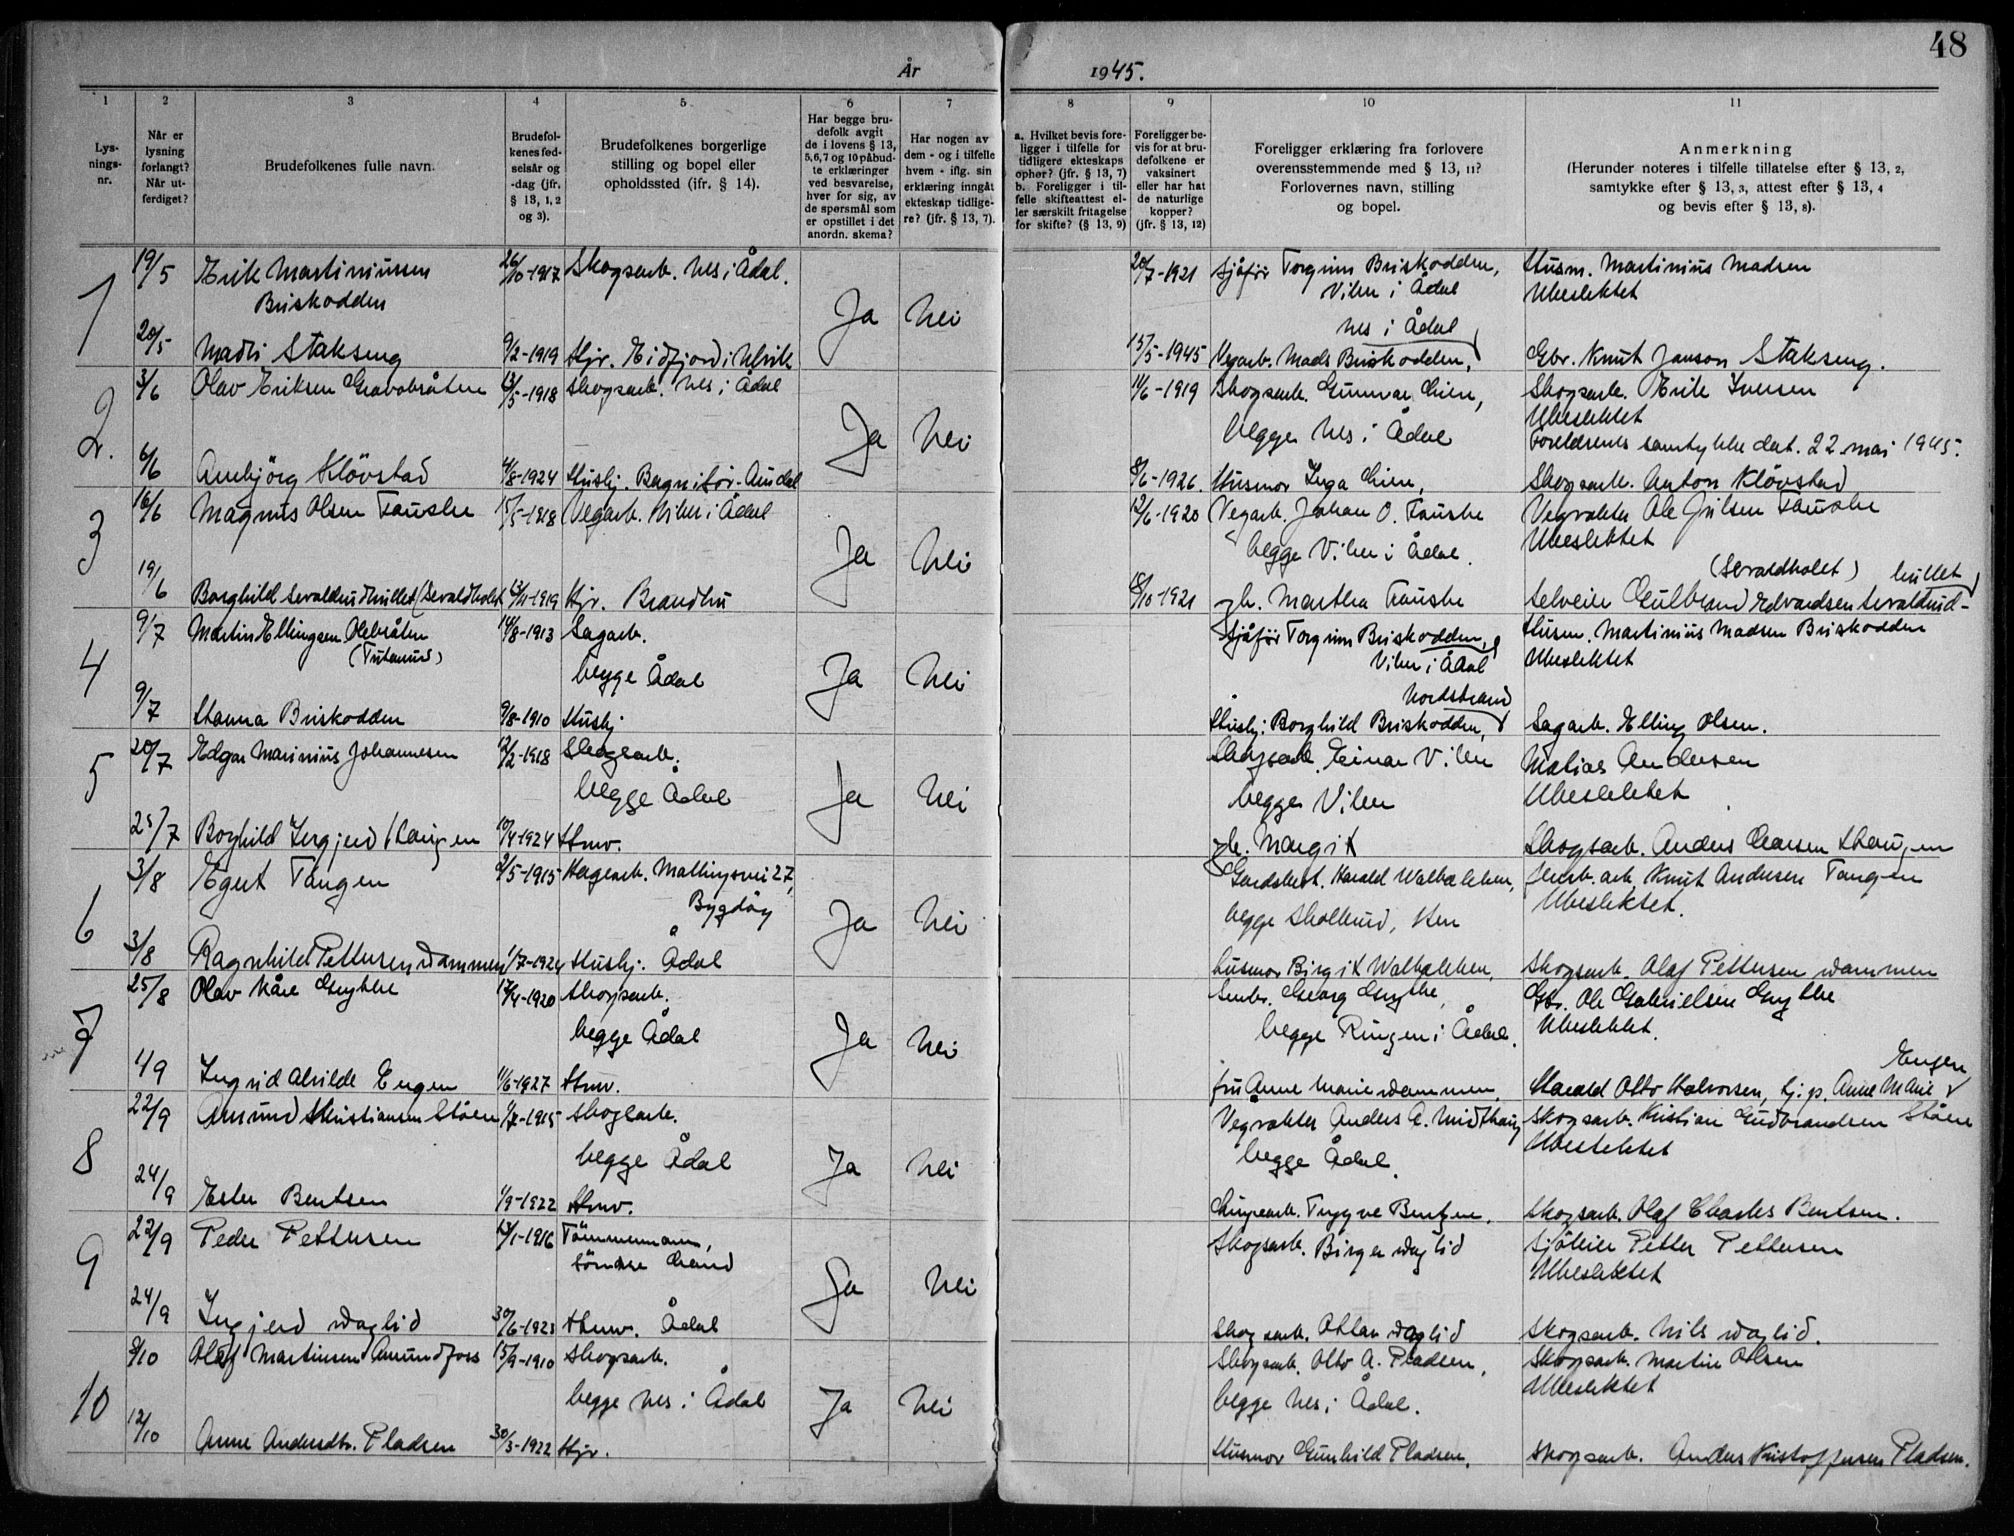 48
År 1945.
1 2 3 4 5 6 7 8 9 10 11
Lys-
nings-
nr.
Når er
lysning
forlangt?
Når ut-
ferdiget?
Brudefolkenes fulle navn.
Brudefol-
kenes fød-
selsår og
-dag (jfr.
§ 13, 1, 2
og 3).
Brudefolkenes borgerlige
stilling og bopel eller
opholdssted (ifr. § 14).
Har begge bru-
defolk avgit
de i lovens § 13,
5, 6, 7 og 10 påbud-
te erklæringer
ved besvarelse,
hver for sig, av
de spørsmål som
er opstillet i det
anordn. skema?
Har nogen av
dem - og i tilfelle
hvem - iflg. sin
erklæring inngåt
ekteskap tidlige-
re? (jfr. § 13, 7).
a. Hvilket bevis fore-
ligger i tilfelle for
tidligere ekteskaps
ophør? (jfr. § 13, 7)
b. Foreligger i til-
felle skifteattest el-
ler særskilt fritagelse
for skifte? (§ 13, 9)
Foreligger be-
vis for at bru-
defolkene er
vaksinert
eller har hat
de naturlige
kopper?
(jfr. § 13, 12)
Foreligger erklæring fra forlovere
overensstemmende med § 13, 11?
Forlovernes navn, stilling
og bopel.
Anmerkning
(Herunder noteres i tilfelle tillatelse efter § 13, 2,
samtykke efter § 13, 3, attest efter § 13, 4
og bevis efter § 13, 8).
1 19/5 Erik Martiniussen 26/10-1917 Skogsarb. Nes i Ådal. Ja Nei 20/7-1921 Sjåfør Torgrim Briskodden, Husm. Martinius Madsen
Briskodden Viker i Ådal Ubeslektet
Nes i Ådal
20/5 Madli Stakseng 9/2-1919 Hjr. Eidfjord i Ulvik 15/5-1945 Vegarb. Mads Briskodden, Gbr. Knut Janson Stakseng.
2. 3/6 Olav Eriksen Gravobråten 13/5-1918 Skogsarb. Nes i Ådal Ja Nei 11/6-1919 Skogsarb. Gunnar Lien, Skogsarb. Erik Iversen
begge Nes i Ådal Ubeslektet
Foreldrenes samtykke dat. 22 mai 1945.
6/6 Annbjörg Klövstad 4/8-1924 Hushj. Bagn i Sør-Aurdal 8/6-1926. Husmor Inga Lien, Skogsarb. Anton Klövstad
3 16/6 Magnus Olsen Fauske 15/5-1918 Vegarb. Viker i Ådal Ja Nei 12/6-1920 Vegarb. Johan O. Fauske Vegvokter Ole Juilsen Fauske
begge Viker i Ådal. Ubeslektet
(Sevaldholet) hullet
19/6 Borghild Sevaldrudhullet (Sevaldholet 13/11-1919 Hjr. Brandbu 18/10-1921 gb. Martha Fauske Selveier Gulbrand Edvardsen Sevaldrud-
4 9/7 Martin Ellingsen Olebråten 14/8-1913 Sagarb. Ja Nei Sjåfør Torgrim Briskodden, Husm. Martinius Madsen Briskodden
(Tutanrud) begge Ådal Viker i Ådal Ubeslektet
Nordstrand
9/7 Hanna Briskodden 9/8-1910 Hushj Hushj. Borghild Briskodden, Sagarb. Elling Olsen.
5 20/7 Edgar Marinius Johannesen 12/2-1918 Skogsarb. Ja Nei Skogsarb. Einar Viker Matias Andersen
begge Ådal begge Viker Ubeslektet
25/7 Borghild Ingjerd Haugen 10/4-1924 Hmv. gb. Margit Skogsarb. Anders Larsen Haugen
6 3/8 Egert Tangen 2/5-1915 Hagearb. 27, Ja Nei Gårdsbest. Harald Walbækken, Jernb. arb. Knut Andersen Tangen
Bygdöy begge Skollerud, Ubeslektet.
3/8 Ragnhild Pettersen Dammen 1/7-1924 Hushj. Ådal Husmor Birgit Walbækken, Skogsarb. Olaf Pettersen Dammen
7 25/8 Olav Kåre Grythe 17/4-1920 Skogsarb. Ja Nei Georg Grythe, Gbr. Ole Gabrielsen Grythe
begge Ådal begge Ringen i Ådal. Ubeslektet.
Engen
4/9 Ingrid Alvilde Engen 11/6-1927 Hmv. fru Anne Marie Dammen, Harald Otto Halvorsen, hj.p. Anne Marie
8 22/9 Amund Kristiansen Ståen 1/7-1915 Skogsarb. Ja Nei Vegvokter Anders A. Midthaug Skogsarb. Kristian Gudbrandsen Ståen
begge Ådal begge Ådal. Ubeslektet
24/9 Ester Bentsen 1/9-1922 Hmv. Trygve Bentzen. Skogsarb. Olaf Charles Bentsen.
9 22/9 Peder Pettersen 13/1-1916 Tömmermann, Ja Nei Skogsarb. Birger Daglid Sjöleier Petter Pettersen
Söndre Land Ubeslektet
24/9 Ingjerd Daglid 30/6-1923 Hmv. Ådal Skogsarb. Ottar Daglid Skogsarb. Nils Daglid.
10 8/10 Olaf Martinsen Amundfoss 15/9-1910 Skogsarb. Ja Nei Skogsarb. Otto A. Pladsen, Skogsarb. Martin Olsen
begge Nes i Ådal begge Nes i Ådal. Ubeslektet
12/10 Anne Andersdtr. Pladsen 30/3-1922 Hjr. Husmor Gunhild Pladsen, Skogsarb. Anders Kristoffersen Pladsen.